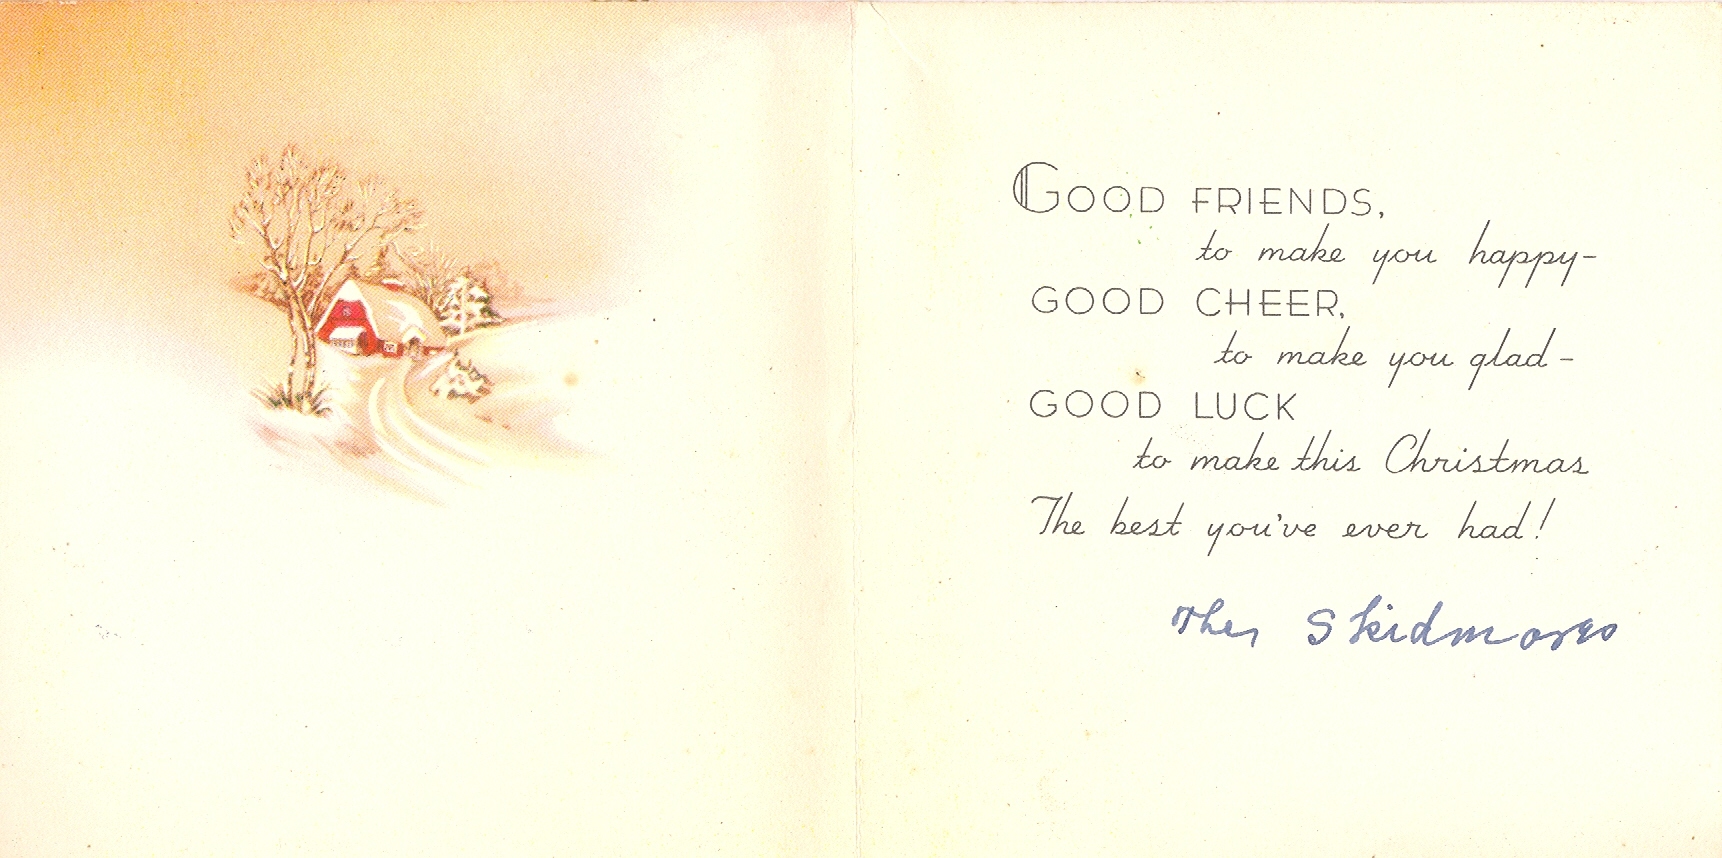 GOOD FRIENDS,
to make you happy-
GOOD CHEER,
to make you glad-
GOOD LUCK
to make this Christmas
The best you've ever had!
The Skidmores